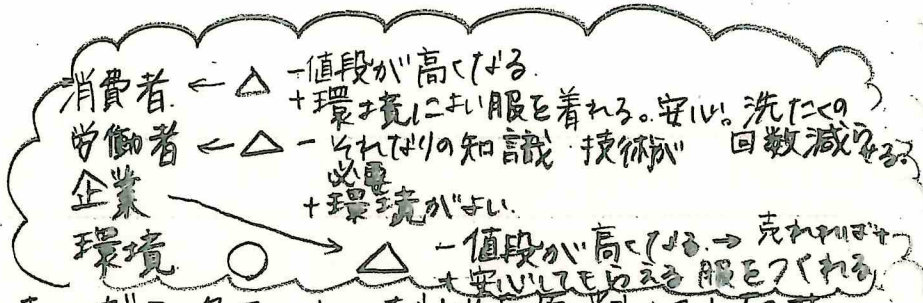 消費者 ← △ -値段が高くなる。
+環境によい服を着れる。安心。洗たくの回数減らせる。
労働者 ← △ -それなりの知識・技術が必要
+環境がよい。
企業 → △ -値段が高くなる。→ 売れれば+
+安心してもらえる服をつくれる
環境 ○